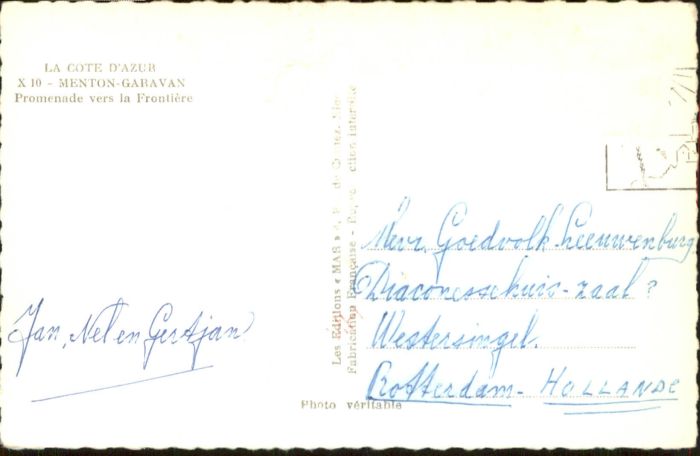 LA COTE D'AZUR
X 10 - MENTON-GARAVAN
Promenade vers la Frontière
Jan, Nel en Gertjan
Les Editions « MAR »
Fabrication Française - ction interdite
Mevr. Goedvolk-Leeuwenburg
Diaconessehuis-zaal?
Westersingel.
Rotterdam - HOLLANDE
Photo véritable